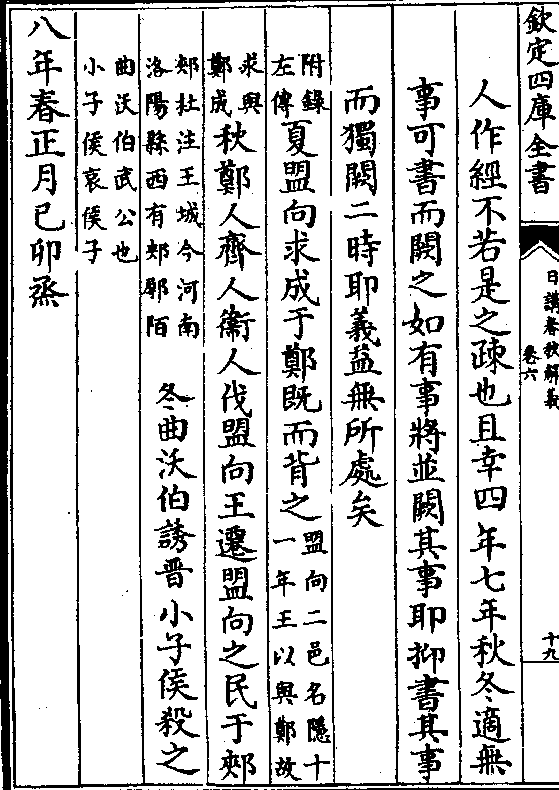 欽定四庫全書
日講春秋解義
卷六
十九
人作經不若是之疎也且幸四年七年秋冬適無
事可書而闕之如有事將並闕其事耶抑書其事
而獨闕二時耶義益無所處矣
附錄
左傳
夏盟向求成于鄭既而背之
盟向二邑名隱十
一年王以與鄭故
求與
鄭成
秋鄭人齊人衞人伐盟向王遷盟向之民于郟
郟杜注王城今河南
洛陽縣西有郟鄏陌
冬曲沃伯誘晉小子侯殺之
曲沃伯武公也
小子侯哀侯子
八年春正月己卯烝